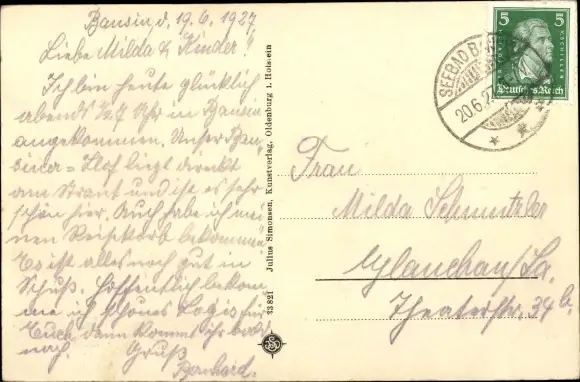 Bansin d. 19.6.1927
Liebe Milda & Kinder!
Ich bin heute glücklich
abends 1/2 7 Uhr in Bansin
angekommen. Unser Ban-
siner-Hof liegt direkt
am Strant und ist es sehr
schön hier. Auch habe ich mei-
nen Reisekorb bekommen
Es ist alles noch gut in
Schuß. Hoffentlich bekom
me ich schönes Logis für
Euch, dann kommt ihr bald
nach.
Gruß
Bernhard.
33821 Julius Simonsen, Kunstverlag, Oldenburg i. Holstein
SEEBAD BANSIN
20.6.27
5 5
Deutsches Reich
Frau
Milda Schmutzler
Glauchau/Sa.
Theaterstr. 34 b.